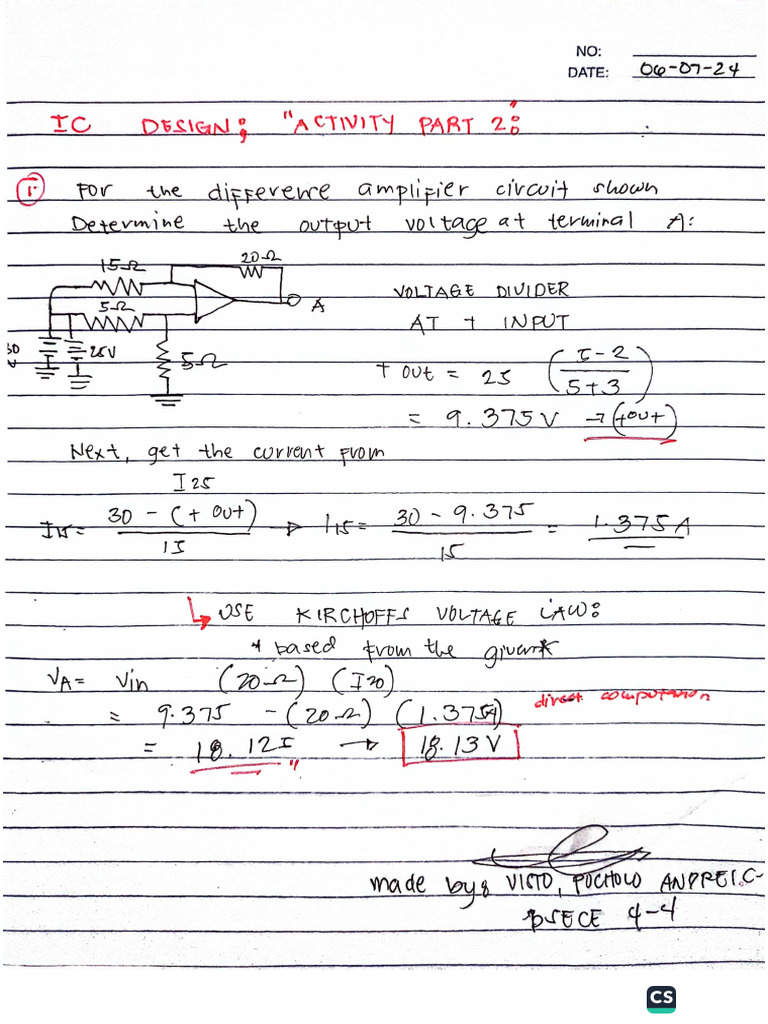 NO:
DATE: 06-07-24
IC DESIGN; "ACTIVITY PART 2:"
1. For the difference amplifier circuit shown
Determine the output voltage at terminal A:
15Ω
20Ω
5Ω
A
30
V
25V
5Ω
VOLTAGE DIVIDER
AT + INPUT
+ out = 25 (I-2 / 5+3)
= 9.375V → (+out)
Next, get the current from
I25
I15 = 30 - (+ out) / 1I → I15 = 30 - 9.375 / 15 = 1.375A
USE KIRCHOFFS VOLTAGE LAW:
* based from the given*
VA = Vin (20Ω) (I20)
= 9.375 - (20Ω) (1.375A)
direct computation
= 18.12I → 18.13V
"
made by: VISTO, POCHOLO ANDREI C.
BSECE 4-4
CS